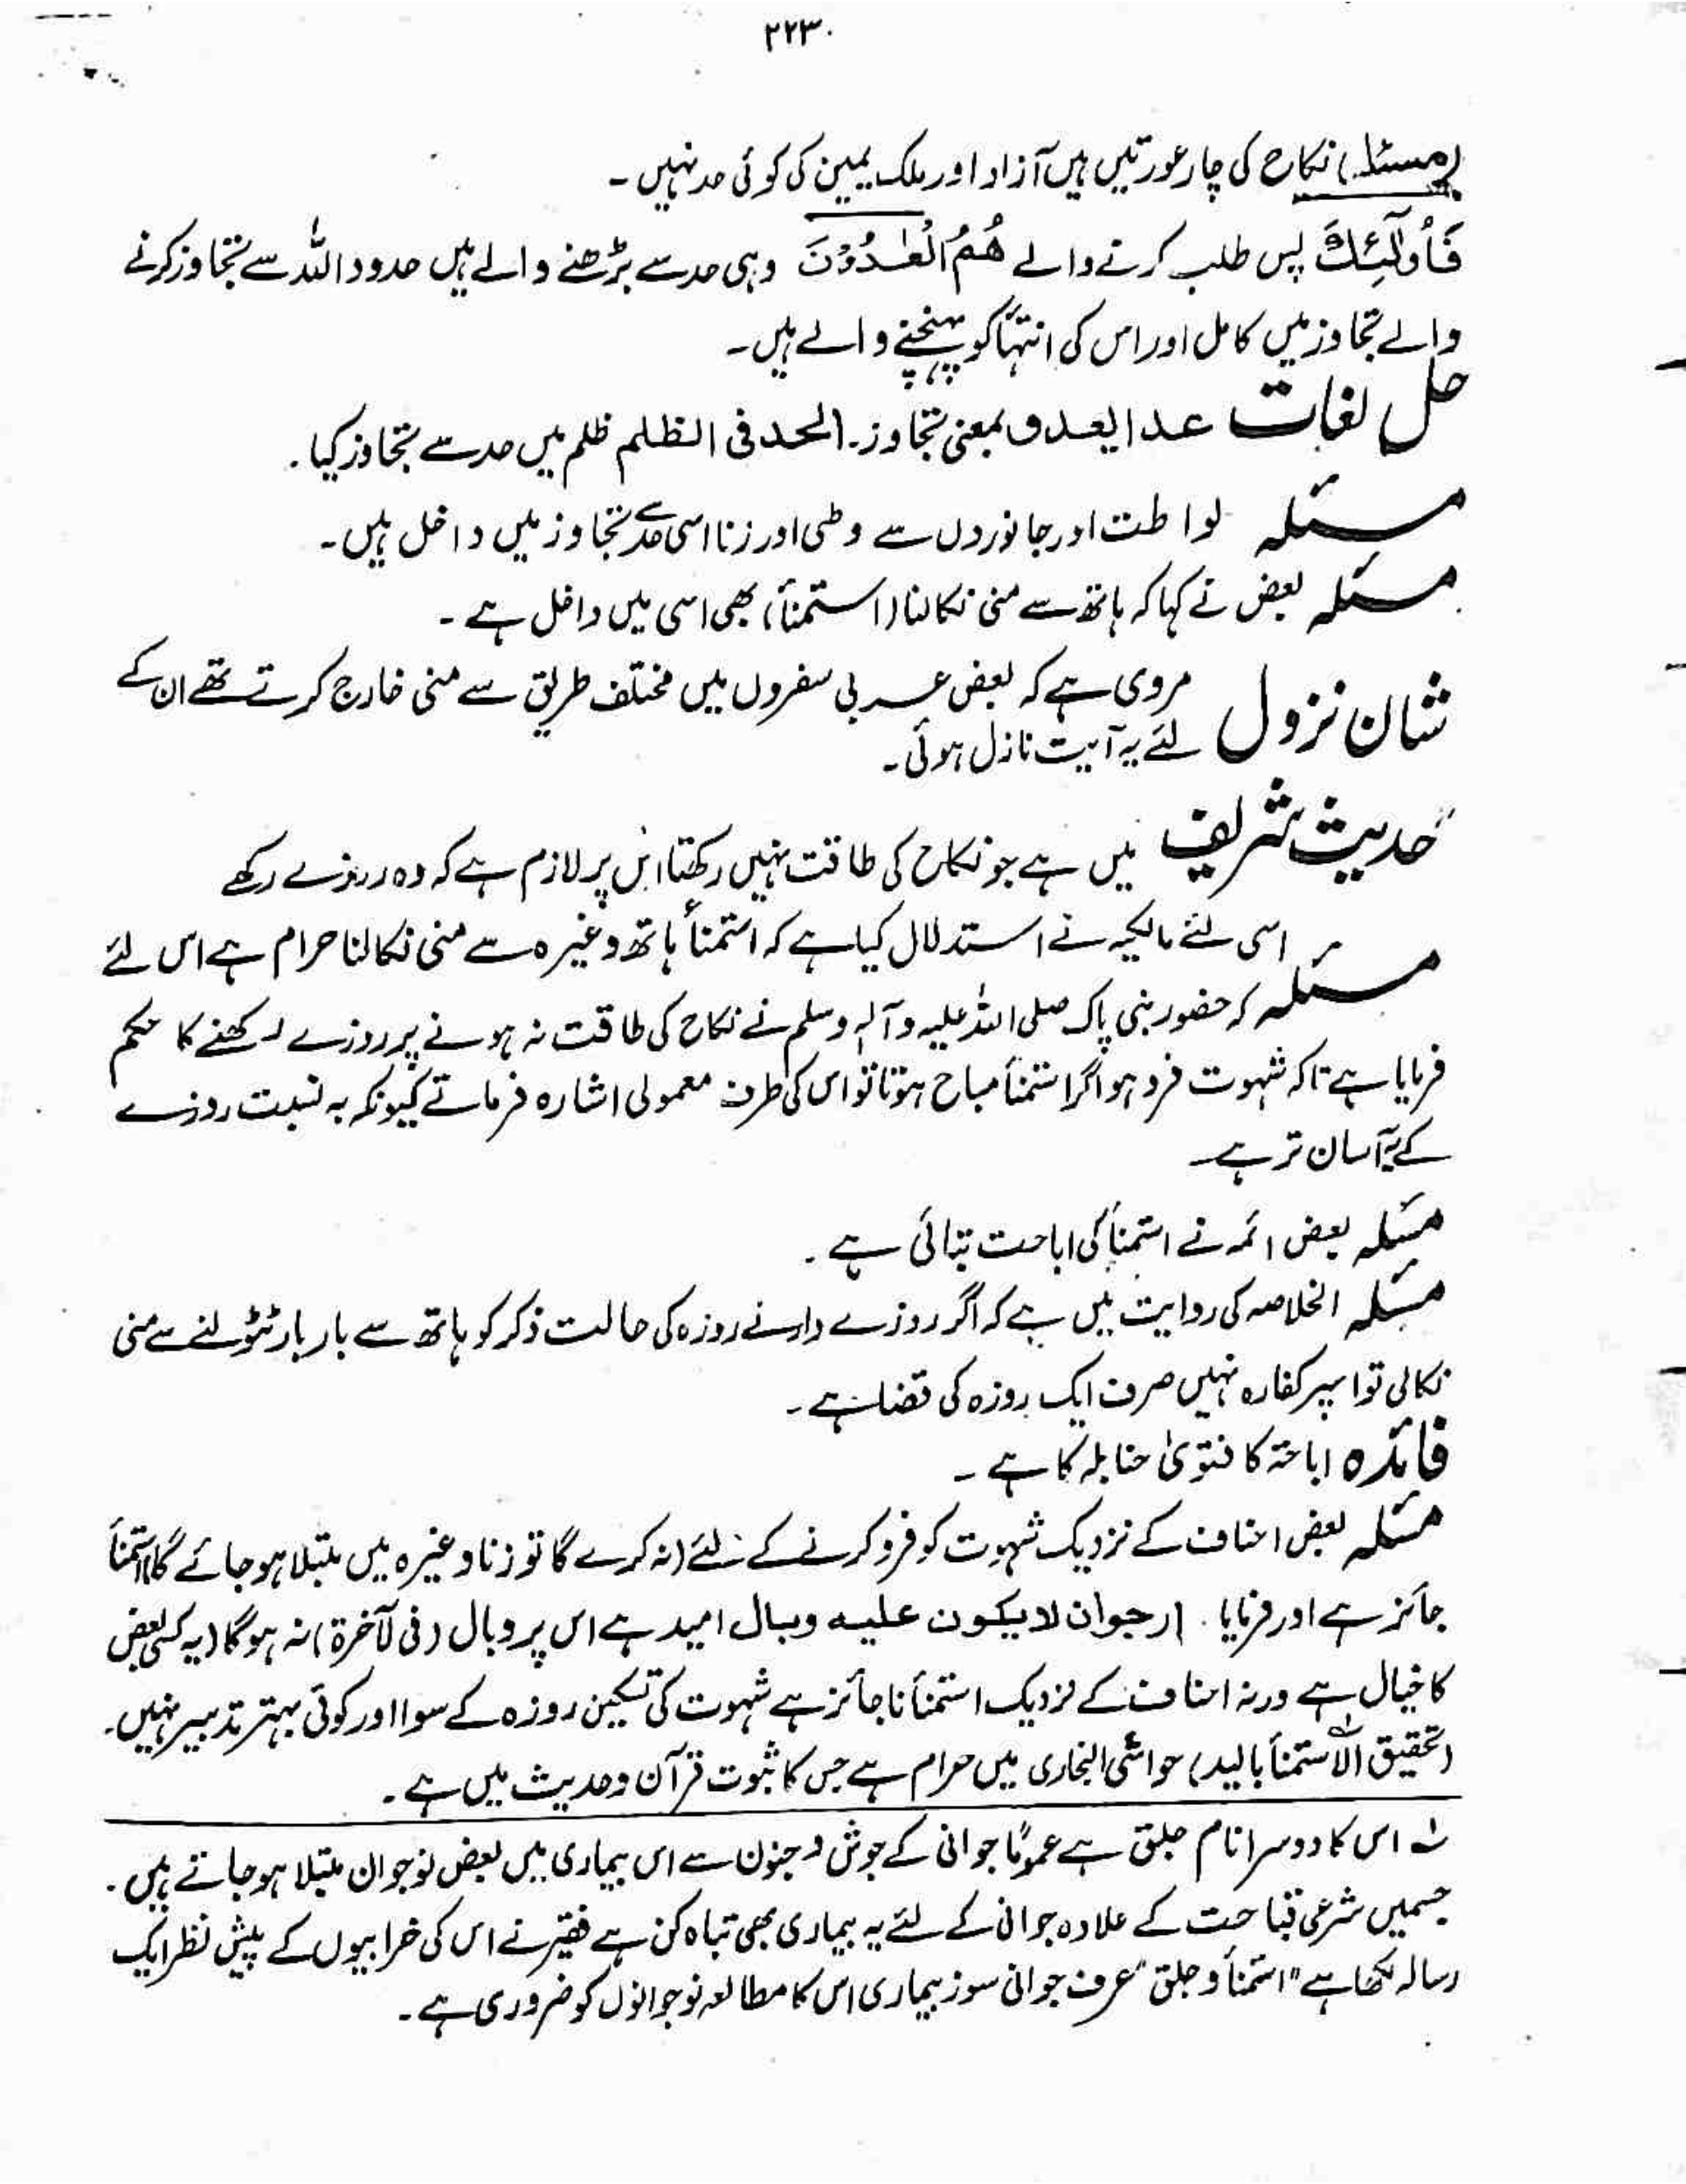 ۲۲۳
(مسئلہ) نکاح کی چار عورتیں ہیں آزاد اور ملک یمین کی کوئی حد نہیں۔
فَاُولٰٓئِكَ پس طلب کرنے والے هُمُ الْعٰدُوْنَ وہی حد سے بڑھنے والے ہیں حدود اللہ سے تجاوز کرنے
والے تجاوز میں کامل اور اس کی انتہا کو پہنچنے والے ہیں۔
حل لغات عدا یعدو بمعنی تجاوز۔ الحد فی الظلم ظلم میں حد سے تجاوز کیا۔
مسئلہ لواطت اور جانوروں سے وطی اور زنا اسی حد سے تجاوز میں داخل ہیں۔
مسئلہ بعض نے کہا کہ ہاتھ سے منی نکالنا (استمنأ) بھی اسی میں داخل ہے۔
شان نزول مروی ہے کہ بعض عربی سفروں میں مختلف طریق سے منی خارج کرتے تھے ان کے
لئے یہ آیت نازل ہوئی۔
حدیث شریف میں ہے جو نکاح کی طاقت نہیں رکھتا اس پر لازم ہے کہ وہ روزے رکھے
مسئلہ اسی لئے مالکیہ نے استدلال کیا ہے کہ استمنأ ہاتھ وغیرہ سے منی نکالنا حرام ہے اس لئے
کہ حضور نبی پاک صلی اللہ علیہ وآلہ وسلم نے نکاح کی طاقت نہ ہونے پر روزے رکھنے کا حکم
فرمایا ہے تاکہ شہوت فرد ہو اگر استمنأ مباح ہوتا تو اس کی طرف معمولی اشارہ فرماتے کیونکہ بہ نسبت روزے
کے یہ آسان تر ہے
مسئلہ بعض ائمہ نے استمنأ کی اباحت بتائی ہے۔
مسئلہ الخلاصہ کی روایت میں ہے کہ اگر روزے دار نے روزہ کی حالت ذکر کو ہاتھ سے بار بار ٹٹولنے سے منی
نکالی تو اسپر کفارہ نہیں صرف ایک روزہ کی قضا ہے۔
فائدہ اباحۃ کا فتویٰ حنابلہ کا ہے۔
مسئلہ بعض احناف کے نزدیک شہوت کو فرو کرنے کے لئے (نہ کرے گا تو زنا وغیرہ میں مبتلا ہو جائے گا) استمنأ
جائز ہے اور فرمایا۔ ارجوان لا یکون علیہ وبال امید ہے اس پر وبال (فی الآخرۃ) نہ ہوگا (یہ کسی بعض
کا خیال ہے ورنہ احناف کے نزدیک استمنأ ناجائز ہے شہوت کی تسکین روزہ کے سوا اور کوئی بہتر تدبیر نہیں۔
(تحقیق الاستمنأ بالید) حواشی البخاری میں حرام ہے جس کا ثبوت قرآن وحدیث میں ہے۔
لہ اس کا دوسرا نام جلق ہے عمومًا جوانی کے جوش و جنون سے اس بیماری میں بعض نوجوان مبتلا ہو جاتے ہیں۔
جسمیں شرعی قباحت کے علاوہ جوانی کے لئے یہ بیماری بھی تباہ کن ہے فقیر نے اس کی خرابیوں کے پیش نظر ایک
رسالہ لکھا ہے "استمنأ و جلق" عرف جوانی سوز بیماری اس کا مطالعہ نوجوانوں کو ضروری ہے۔